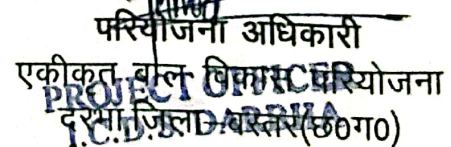 परियोजना अधिकारी
एकीकृत बाल विकास परियोजना
PROJECT OFFICER
दरभा जिला-बस्तर(छ0ग0)
I.C.D.S. DARBHA